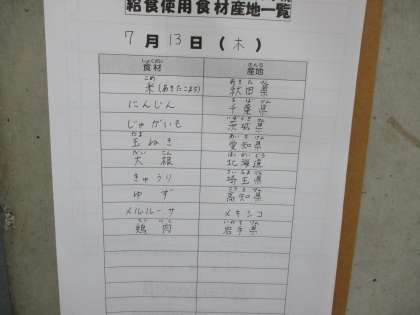 給食使用食材産地一覧
7月13日(木)
食材 産地
米(あきたこまち) 秋田県
にんじん 千葉県
じゃがいも 茨城県
玉ねぎ 愛知県
大根 北海道
きゅうり 埼玉県
ゆず 高知県
メルルーサ メキシコ
鶏肉 岩手県